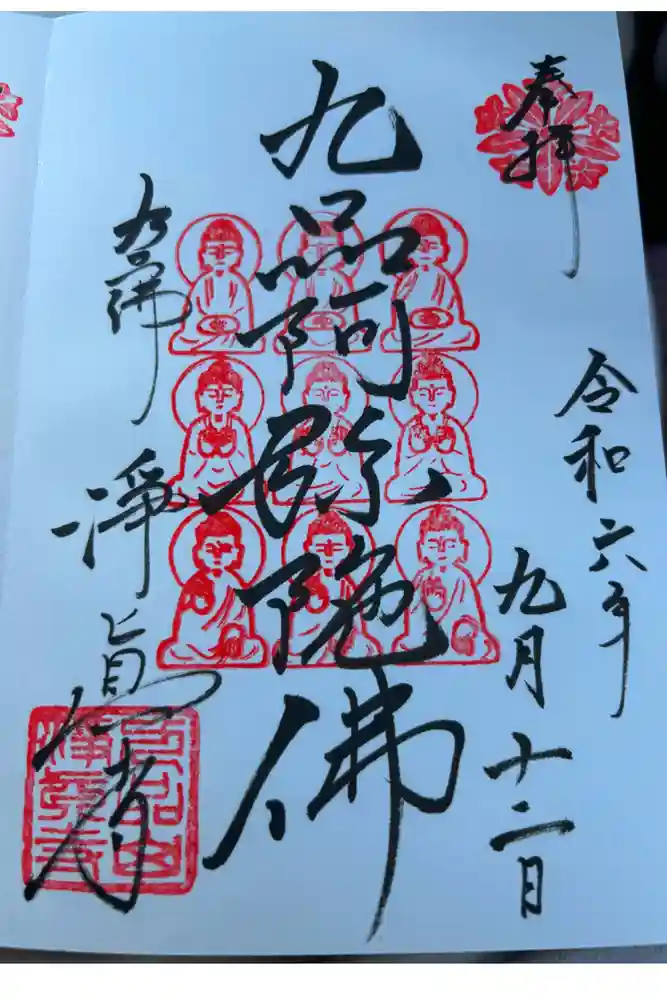 奉拝
令和六年
九月十二日
九品阿弥陀佛
九品佛
淨眞寺